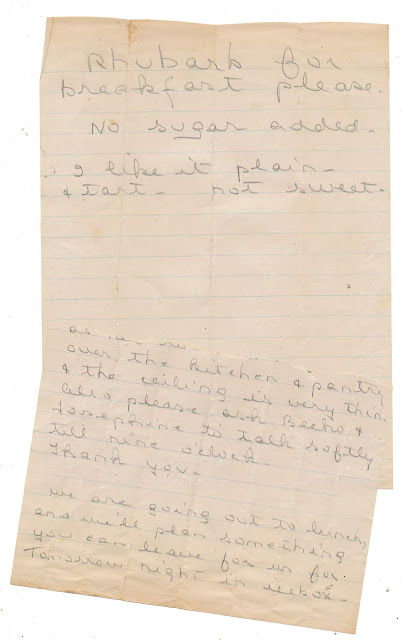 Rhubarb for
breakfast please.
No sugar added.
I like it plain -
& tart - not sweet.
over the kitchen & pantry
& the ceiling is very thin.
Also please ask Becho &
Josephine to talk softly
till nine o'clock.
Thank you -
We are going out to lunch,
and will plan something
you can leave for us for
Tomorrow night in icebox -